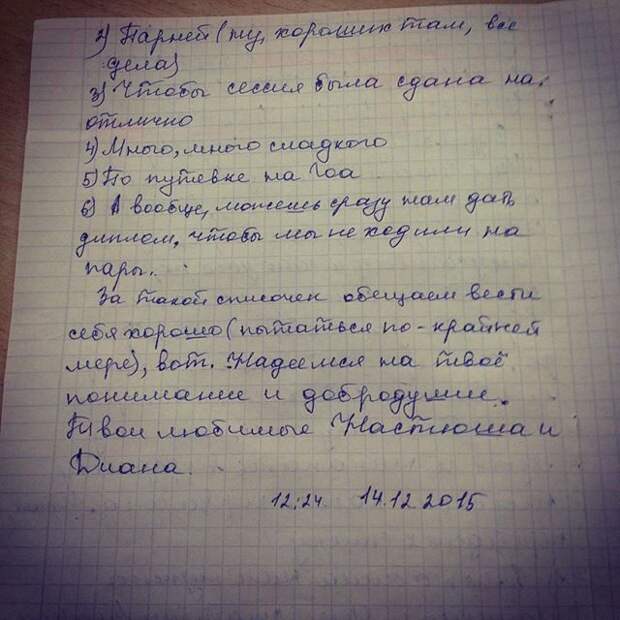 2) Парней (ну, хороших там, все
дела)
3) Чтобы сессия была сдана на
отлично
4) Много, много сладкого
5) По путевке на Гоа
6) А вообще, можешь сразу нам дать
диплом, чтобы мы не ходили на
пары..
За такой списочек обещаем вести
себя хорошо (пытаться по-крайней
мере), вот. Надеемся на твоё
понимание и добродушие.
Твои любимые Настюша и
Диана.
12:24 14.12 2015